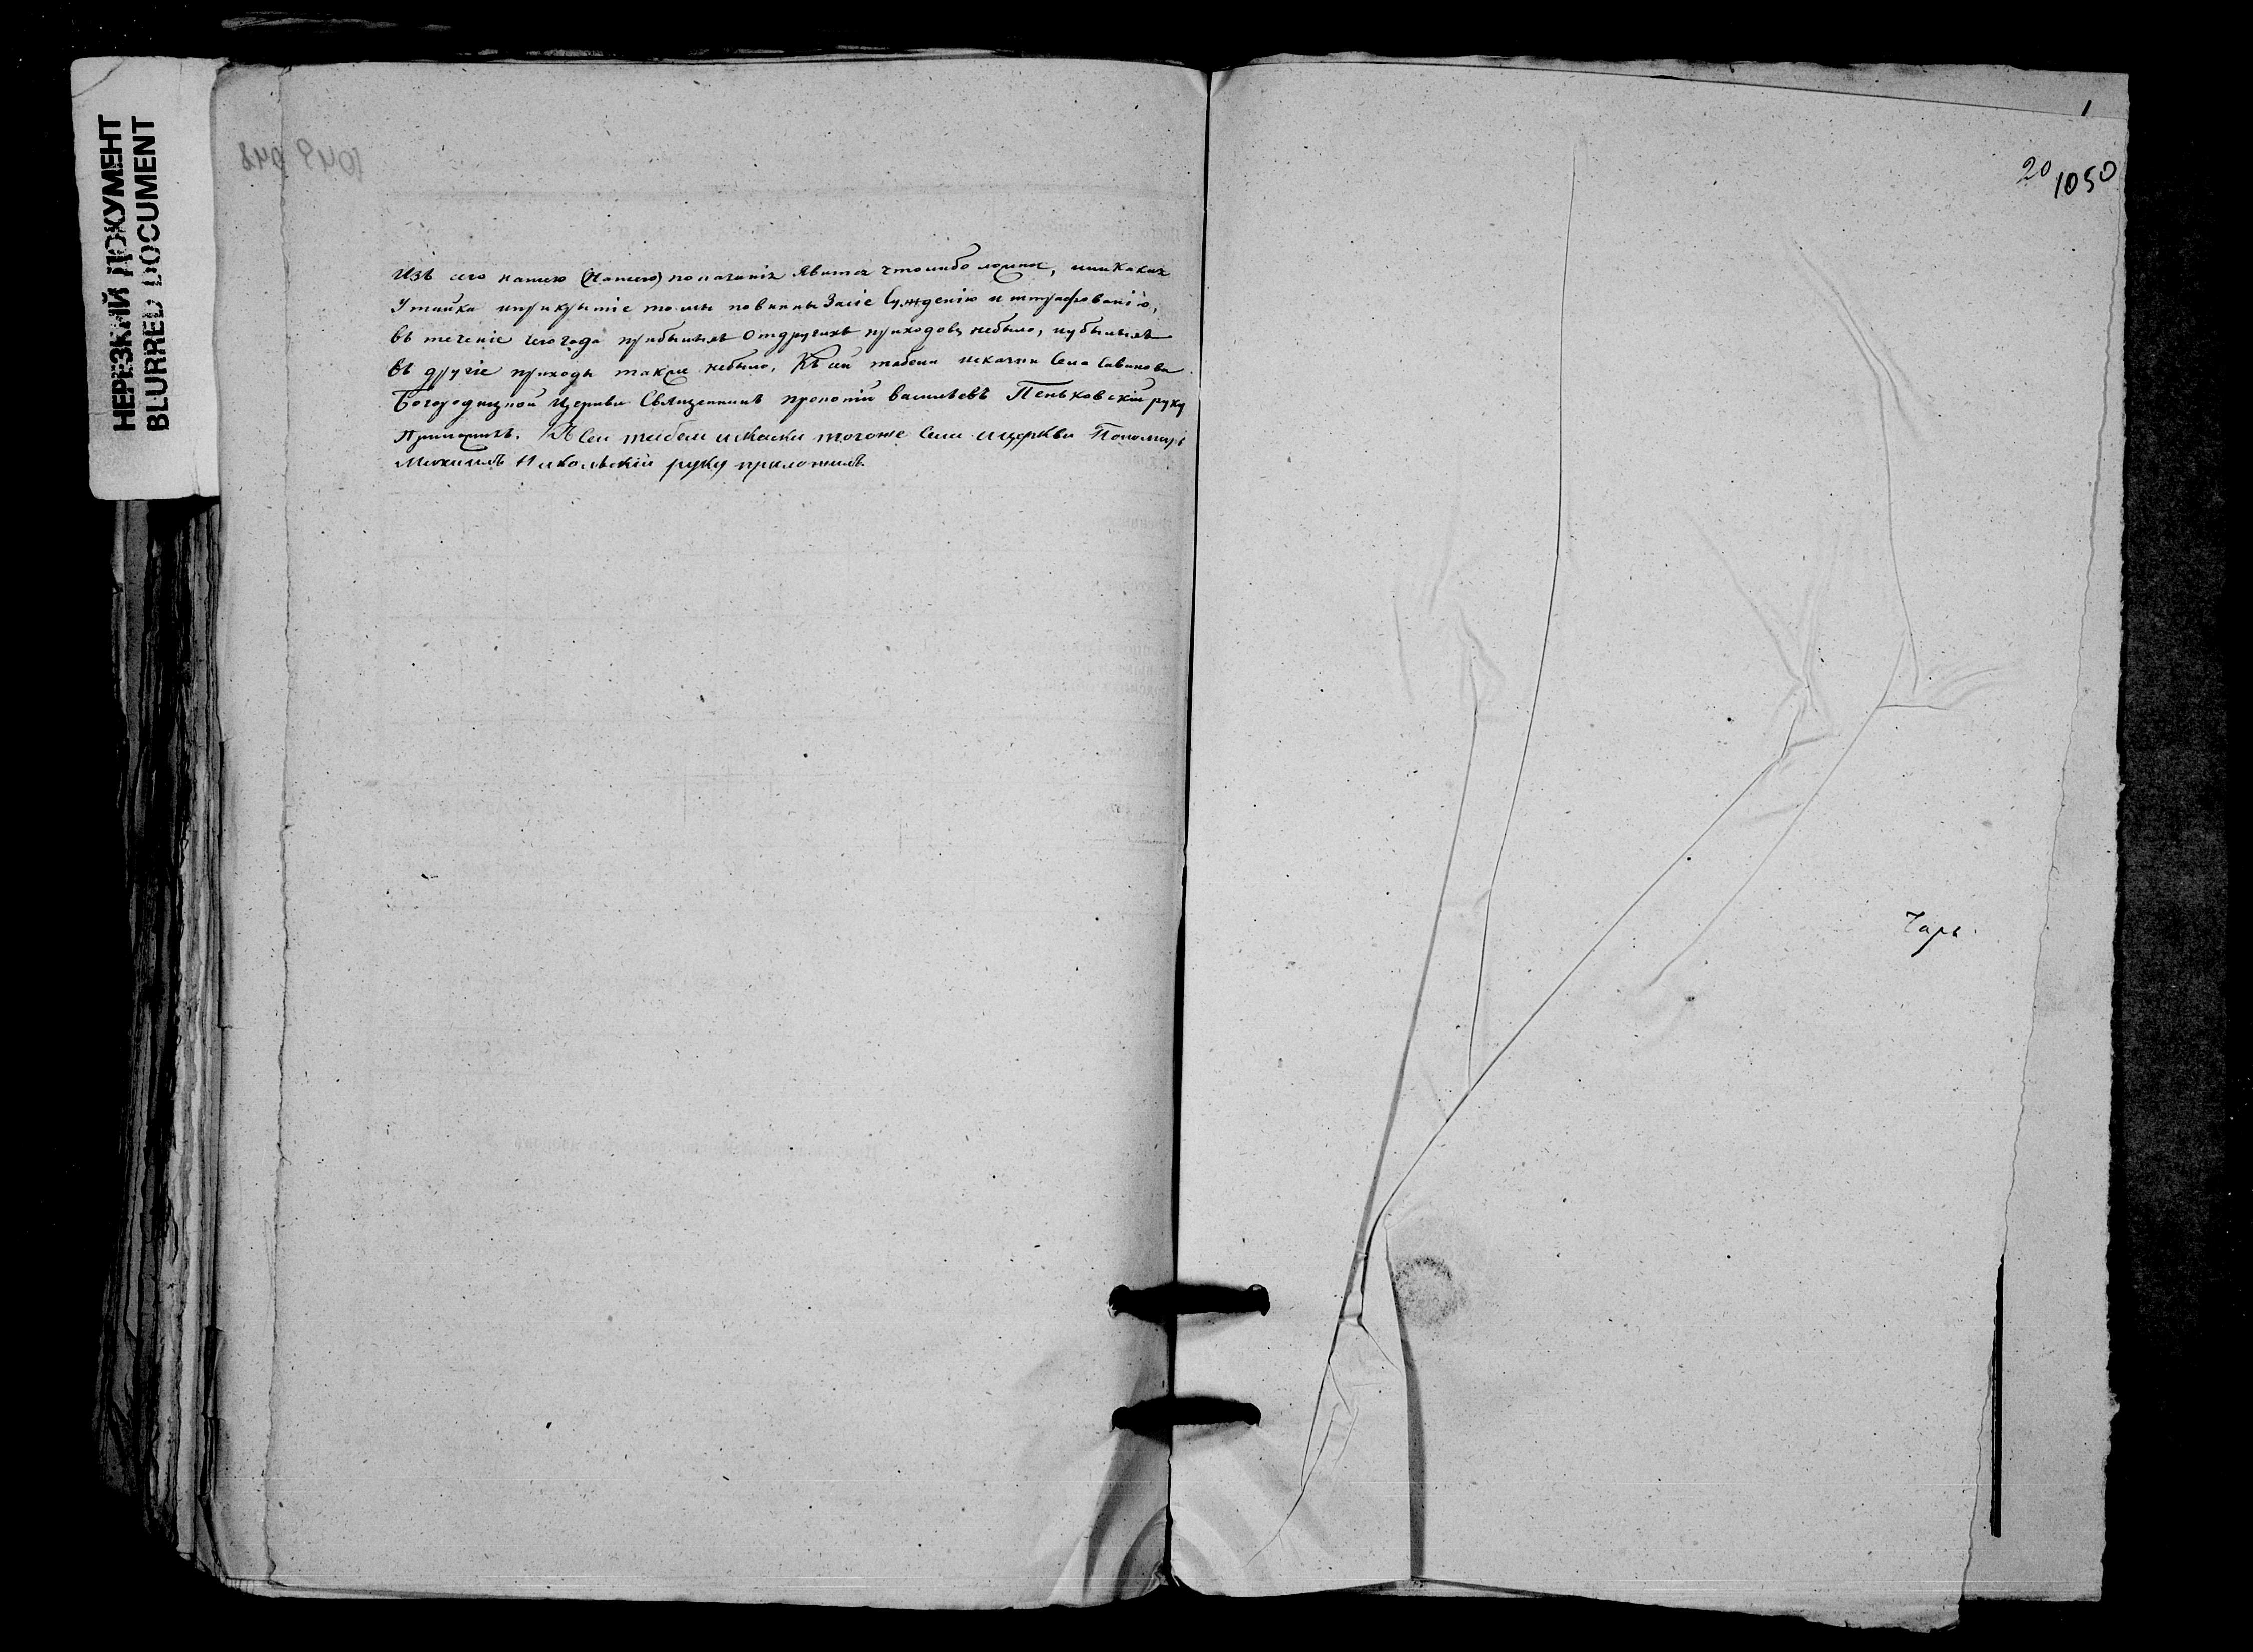 НЕРЕЗКИЙ ДОКУМЕНТ
BLURRED DOCUMENT
Изъ сего нашего (Нашего) показанія Явится чтолибо ложное, или Какая
Утайка иприкрытіе то мы повинны Засіе Сужденію и штрафованію,
въ теченіе сего года прибылыхъ Отдругихъ приходовъ небыло, иубылыхъ
въ другіе приходы также небыло, Къ сей табели исказки Села Савинова
Богородицкой Церкви Священникъ васильевъ Пеньковскій руку
Приложилъ. Къ Сей табели исказки тогоже Села ицеркви Пономарь
Михаилъ Никольскій руку приложилъ
1
20
1050